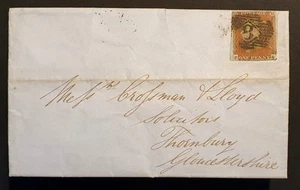 ONE PENNY
Mess^rs Crossman & Lloyd
Solicitors
Thornbury
Gloucestershire